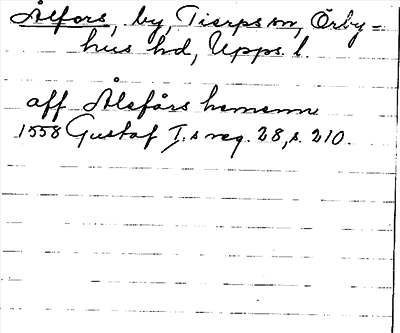 Ålfors, by, Tierps sn, Örby=
hus hd, Upps. l.
aff Ålsfårs hemenn
1558 Gustaf I:s reg. 28, s. 210.